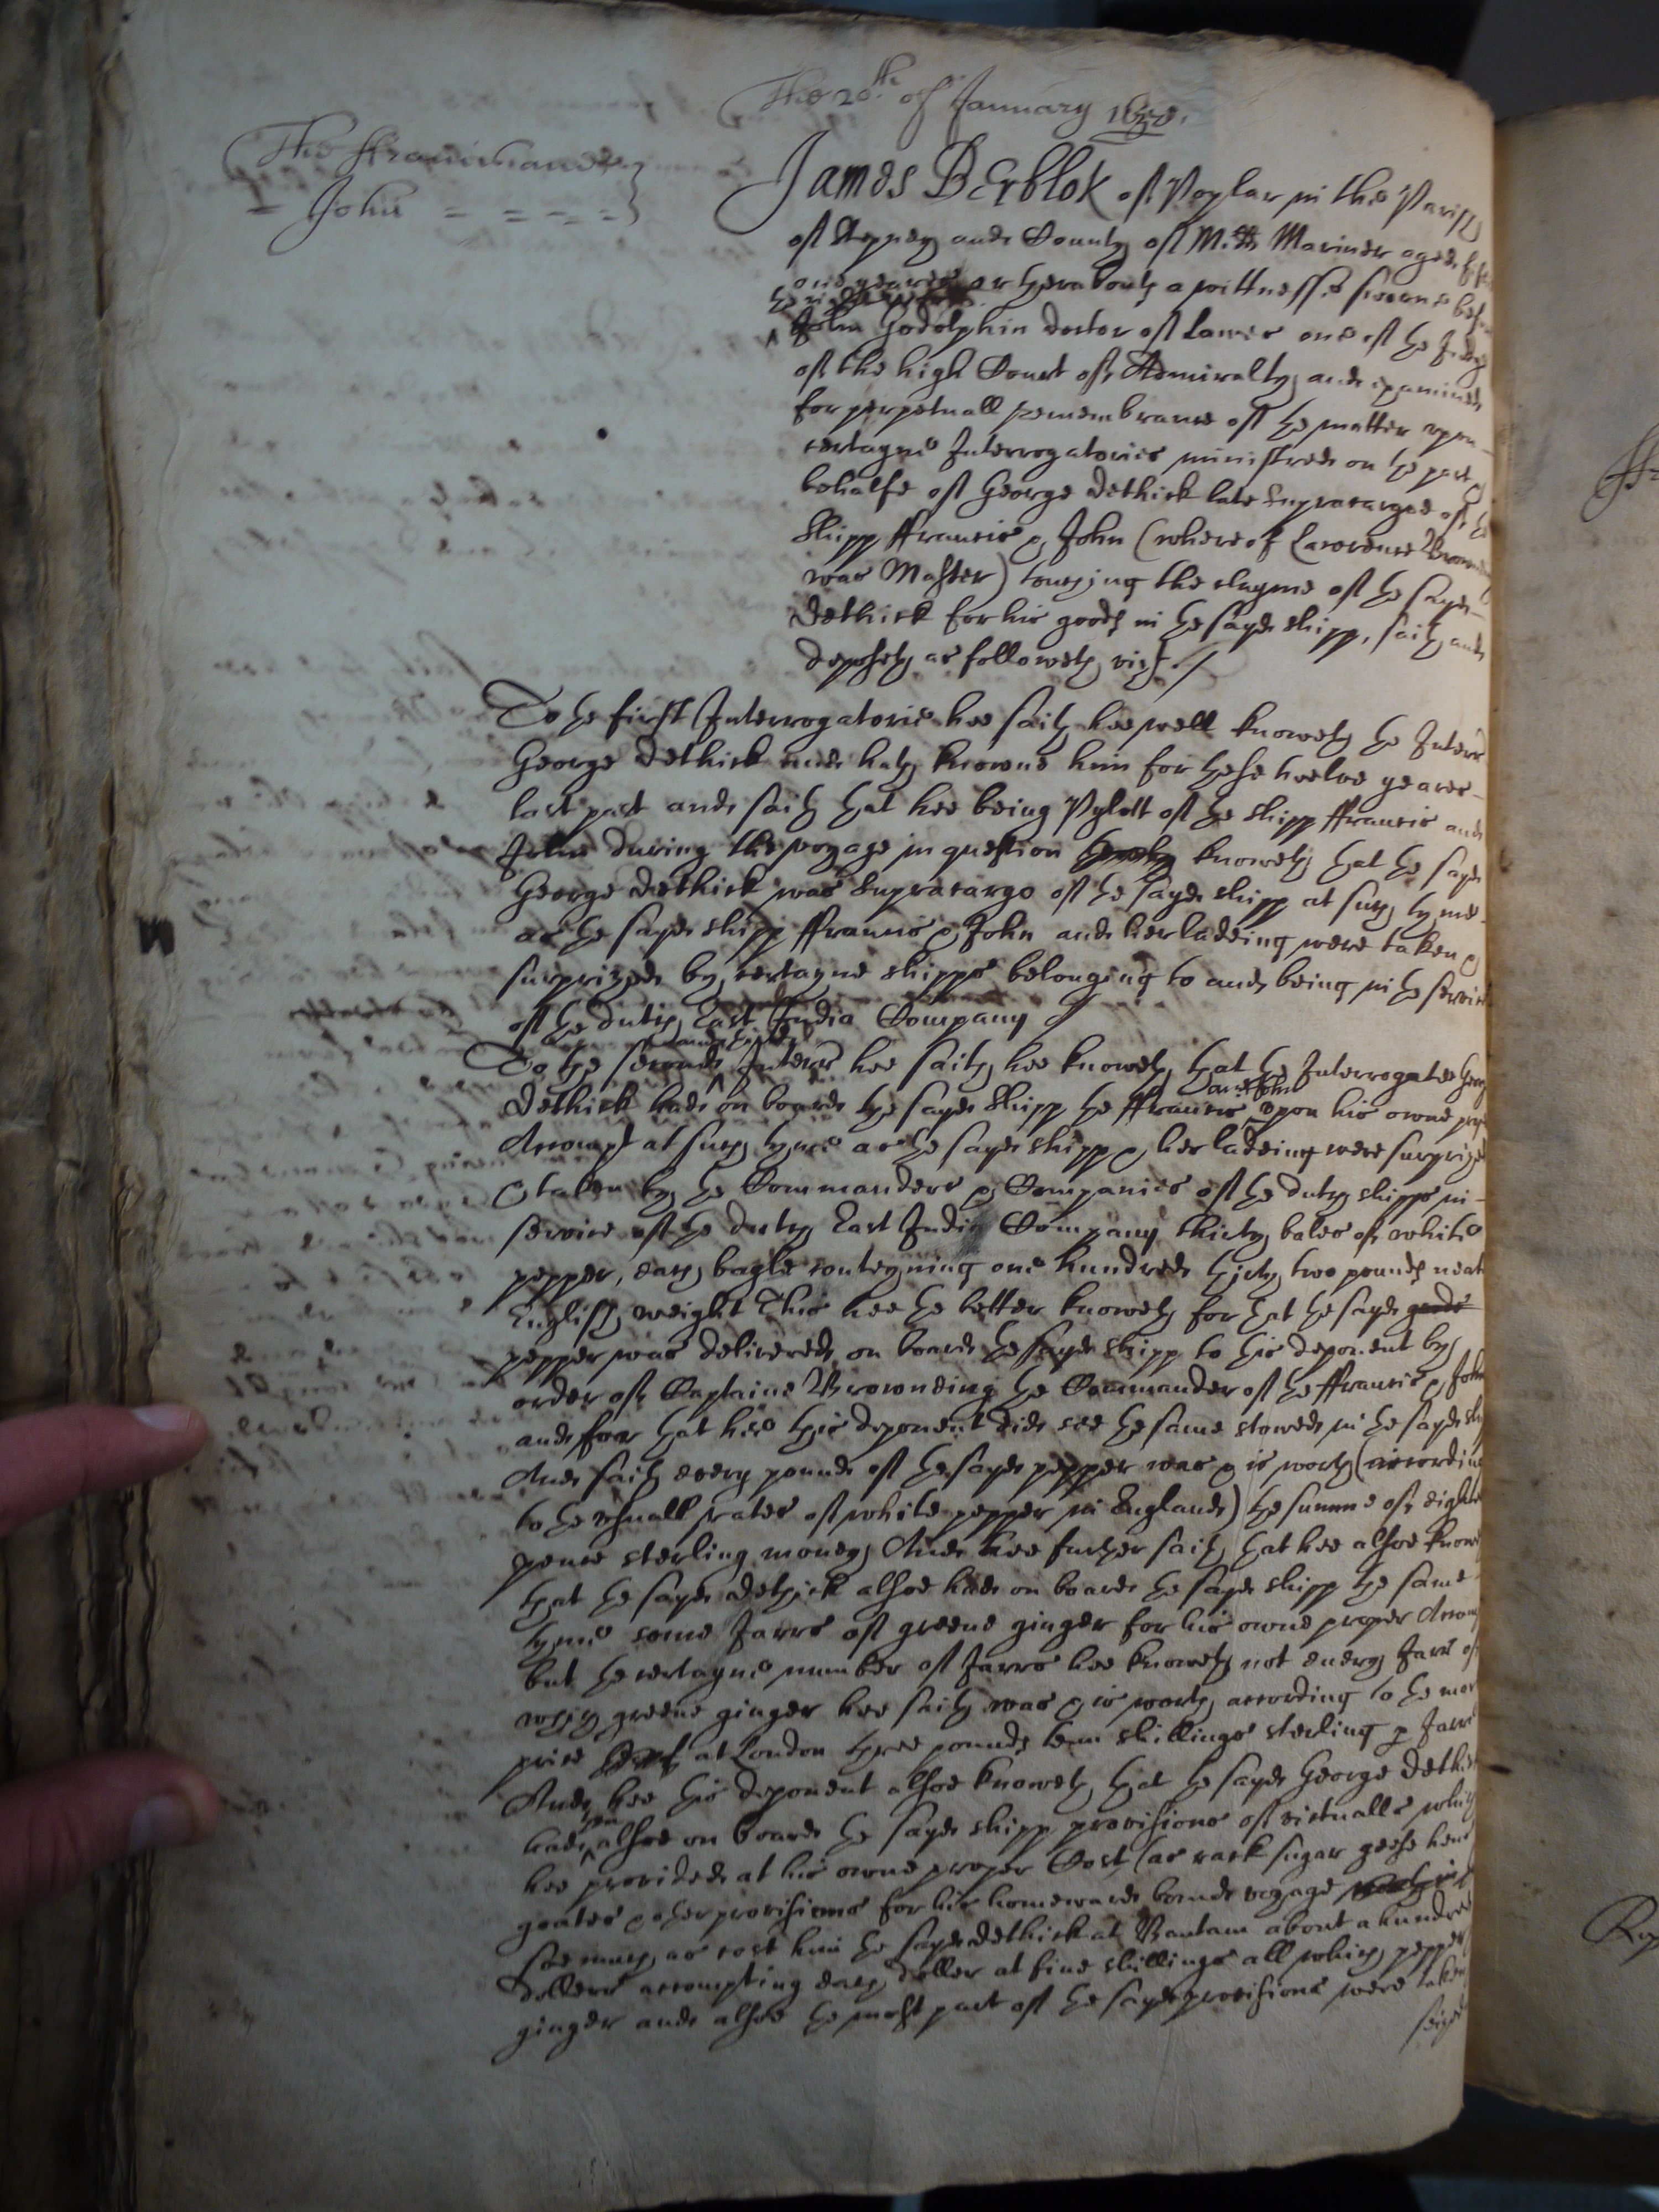 The 20th of January 1658.
The ffrancis and
John
James Berblok of Poplar in the Parish
of Stepney and County of Midds Mariner aged
one yeares or thereabouts a wittnesse sworne before
the right
John Godolphin doctor of Lawes one of the Judges
of the high Court of Admiralty, and examined
for perpetuall remembrance of the matter upon
certayne Interrogatories ministred on the part &
behalfe of George Dethick late Supracargoe of the
Shipp ffrancis & John (whereof Lawrence Browning
was Master) touching the clayme of the sayd
Dethick for his goods in the sayd shipp, saith and
deposeth as followeth vizt./
To the first Interrogatorie hee saith hee well knoweth the Interr
George Dethick and hath knowne him for these twelve yeares
last past and saith that hee being Pylott of the shipp ffrancis and
John during the voyage in question knoweth that the sayd
George Dethick was Supracargo of the sayd shipp at such tyme
as the sayd shipp ffrancis & John and her ladeing were taken &
surprized by certayne shipps belonging to and being in the service
of the dutch East India Company
and third
To the second Interr hee saith hee knoweth that the Interrogate George
and John
Dethick had on board the sayd Shipp the ffrancis upon his owne proper
Accompt at such tyme as the sayd shipp & her ladeing were surprized
& taken by the Commanders & Companies of the dutch shipps in
service of the dutch East India Company thirty bales of white
pepper, each bagle conteyning one hundred thirty two pounds neat
English weight This hee the better knoweth for that the sayd goods
pepper was delivered on board the sayd shipp to this deponent by
order of Captaine Browneing the Commander of the ffrancis & John
and for that hee this deponent did see the same stowed in the sayd ship
And saith every pound of the sayd pepper was & is worth (according
to the usuall rates of white pepper in England) the summe of eighte
pence sterling money, And hee further saith that hee alsoe knoweth
that the sayd Dethick alsoe had on board the sayd shipp the same
tyme some Jarrs of greene ginger for his owne proper Accompt
but the certayne number of Jarrs hee knoweth not every Jarr of
which greene ginger hee saith was & is worth according to the
price at London three pounds tenn shillings sterling p Jarr
And hee this deponent alsoe knoweth that the sayd George Dethick
had alsoe on board the sayd shipp provisions of victualls which
hee provided at his owne proper Cost (as rack sugar geese hens
goates & other provisions for his homeward bound voyage
soe much as cost him the sayd Dethick at Bantam about a hundred
dollers accompting each doller at five shillings all which pepper
ginger and alsoe the most part of the sayd provisions were taken
seized